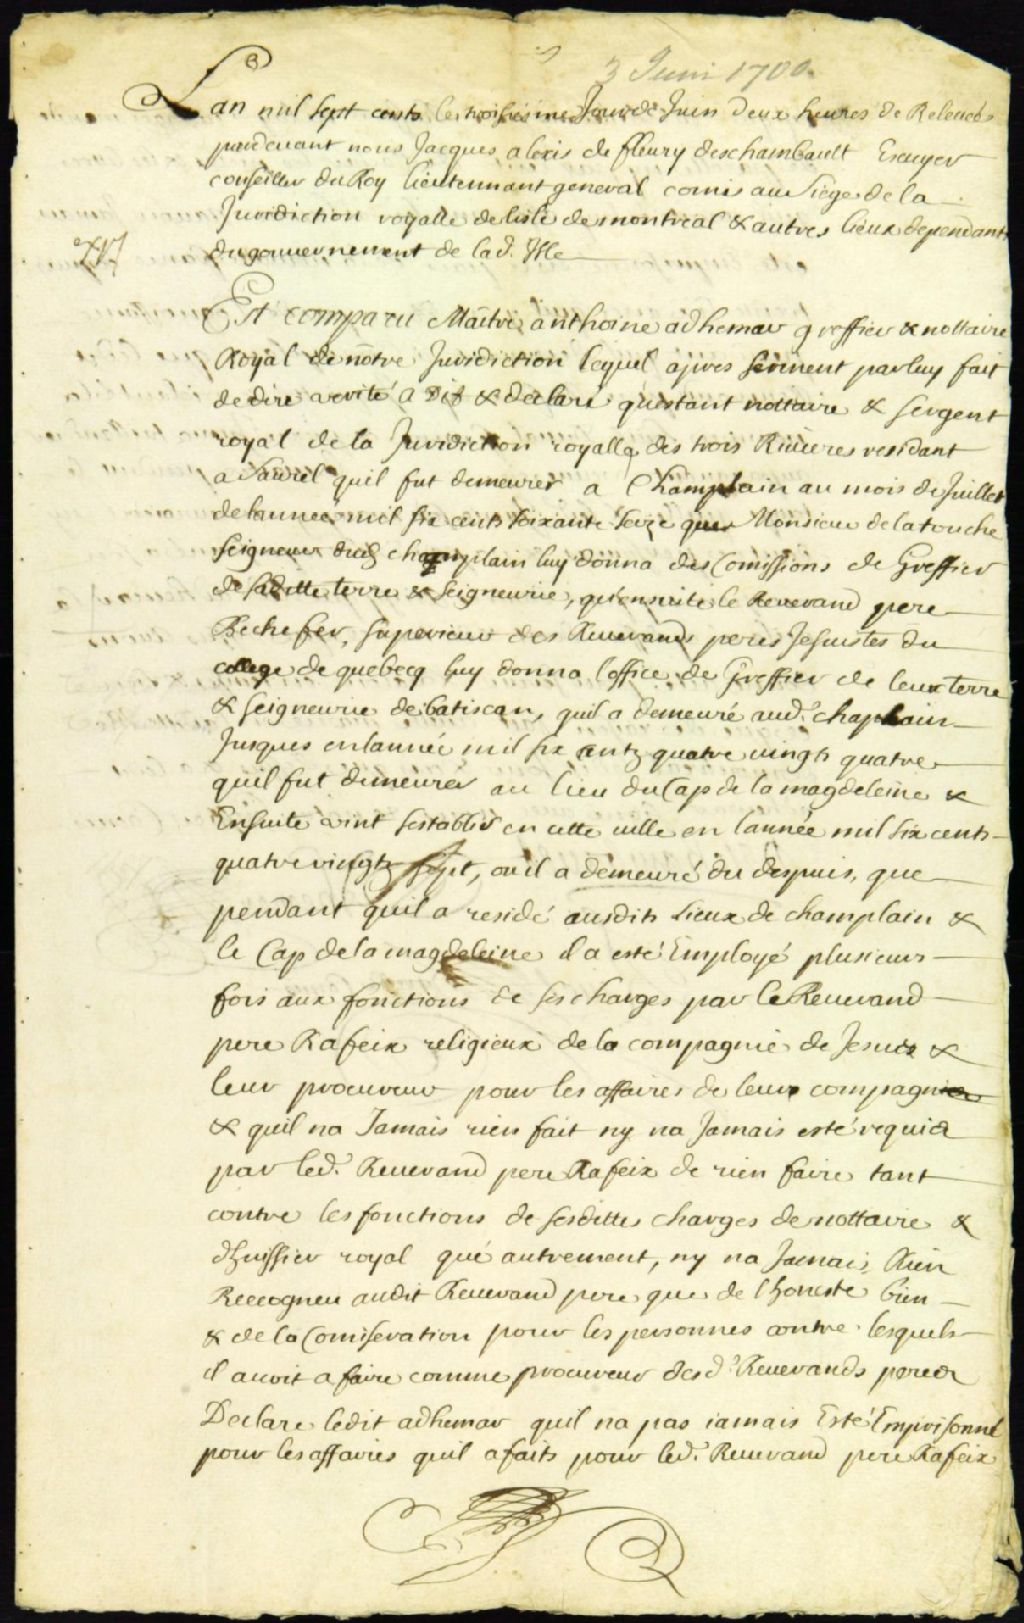 3 Juin 1700.
Lan mil sept cents le troisiesme Jour de Juin deux heures de Relevée
pardevant nous Jacques alexis de fleury deschambault Escuyer
conseiller du Roy lieutennant general comis au siege de la
Juridiction royalle de lisle de montreal & autres lieux dependants
du gouvernement de lad. Isle
Est comparu Maitre anthoine adhemar greffier & nottaire
Royal de nostre Juridiction lequel apres serment par luy fait
de dire verité a Dit & declaré questant nottaire & sergent
royal de la Juridiction royalle des trois Rivieres residant
a Saurel quil fut demeurer a Champlain au mois de Juillet
de lannee mil six cents soixante seize que Monsieur de la touche
seigneur dud champlain luy donna des Comissions de Greffier
de saditte terre & seigneurie, quensuite le Reverand pere
Bechefer, superieur des Reverands peres Jesuistes du
college de quebecq luy donna loffice de Greffier de leur terre
& seigneurie de batiscan, quil a demeuré aud. chaplain
Jusques en lannée mil six centz quatre vingts quatre
quil fut demeurer au lieu du Cap de la magdeleine &
Ensuite vint sestablir en cette ville en lannée mil six cents
quatre vingtz sept, ou il a demeuré du depuis, que
pendant quil a residé ausdits lieux de champlain &
le Cap de la magdeleine il a esté Employé plusieurs
fois aux fonctions de ses charges par le Reverand
pere Rafeix religieux de la compagnie de Jesus &
leur procureur pour les affaires de leur compagnie
& quil na Jamais rien fait ny na Jamais esté requis
par led. Reverand pere Rafeix de rien faire tant
contre les fonctions de sesdittes charges de nottaire &
dhuissier royal que autrement, ny na Jamais Rien
Recogneu audit Reverand pere que de lhoneste bien
& de la Comiseration pour les personnes contre lesquels
il avoit a faire comme procureur desd. Reverands peres
Declare ledit adhemar quil na pas iamais Esté Emprisonné
pour les affaires quil a faits pour led. Reverand pere Rafeix